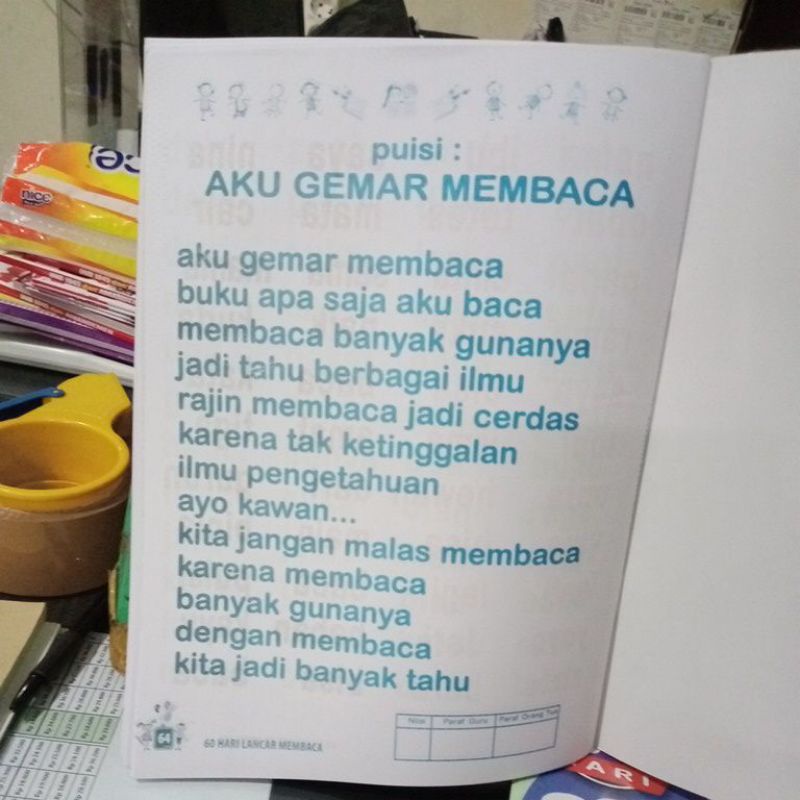 puisi :
AKU GEMAR MEMBACA
aku gemar membaca
buku apa saja aku baca
membaca banyak gunanya
jadi tahu berbagai ilmu
rajin membaca jadi cerdas
karena tak ketinggalan
ilmu pengetahuan
ayo kawan...
kita jangan malas membaca
karena membaca
banyak gunanya
dengan membaca
kita jadi banyak tahu
Nilai Paraf Guru Paraf Orang Tua
64 60 HARI LANCAR MEMBACA
nice
ARI